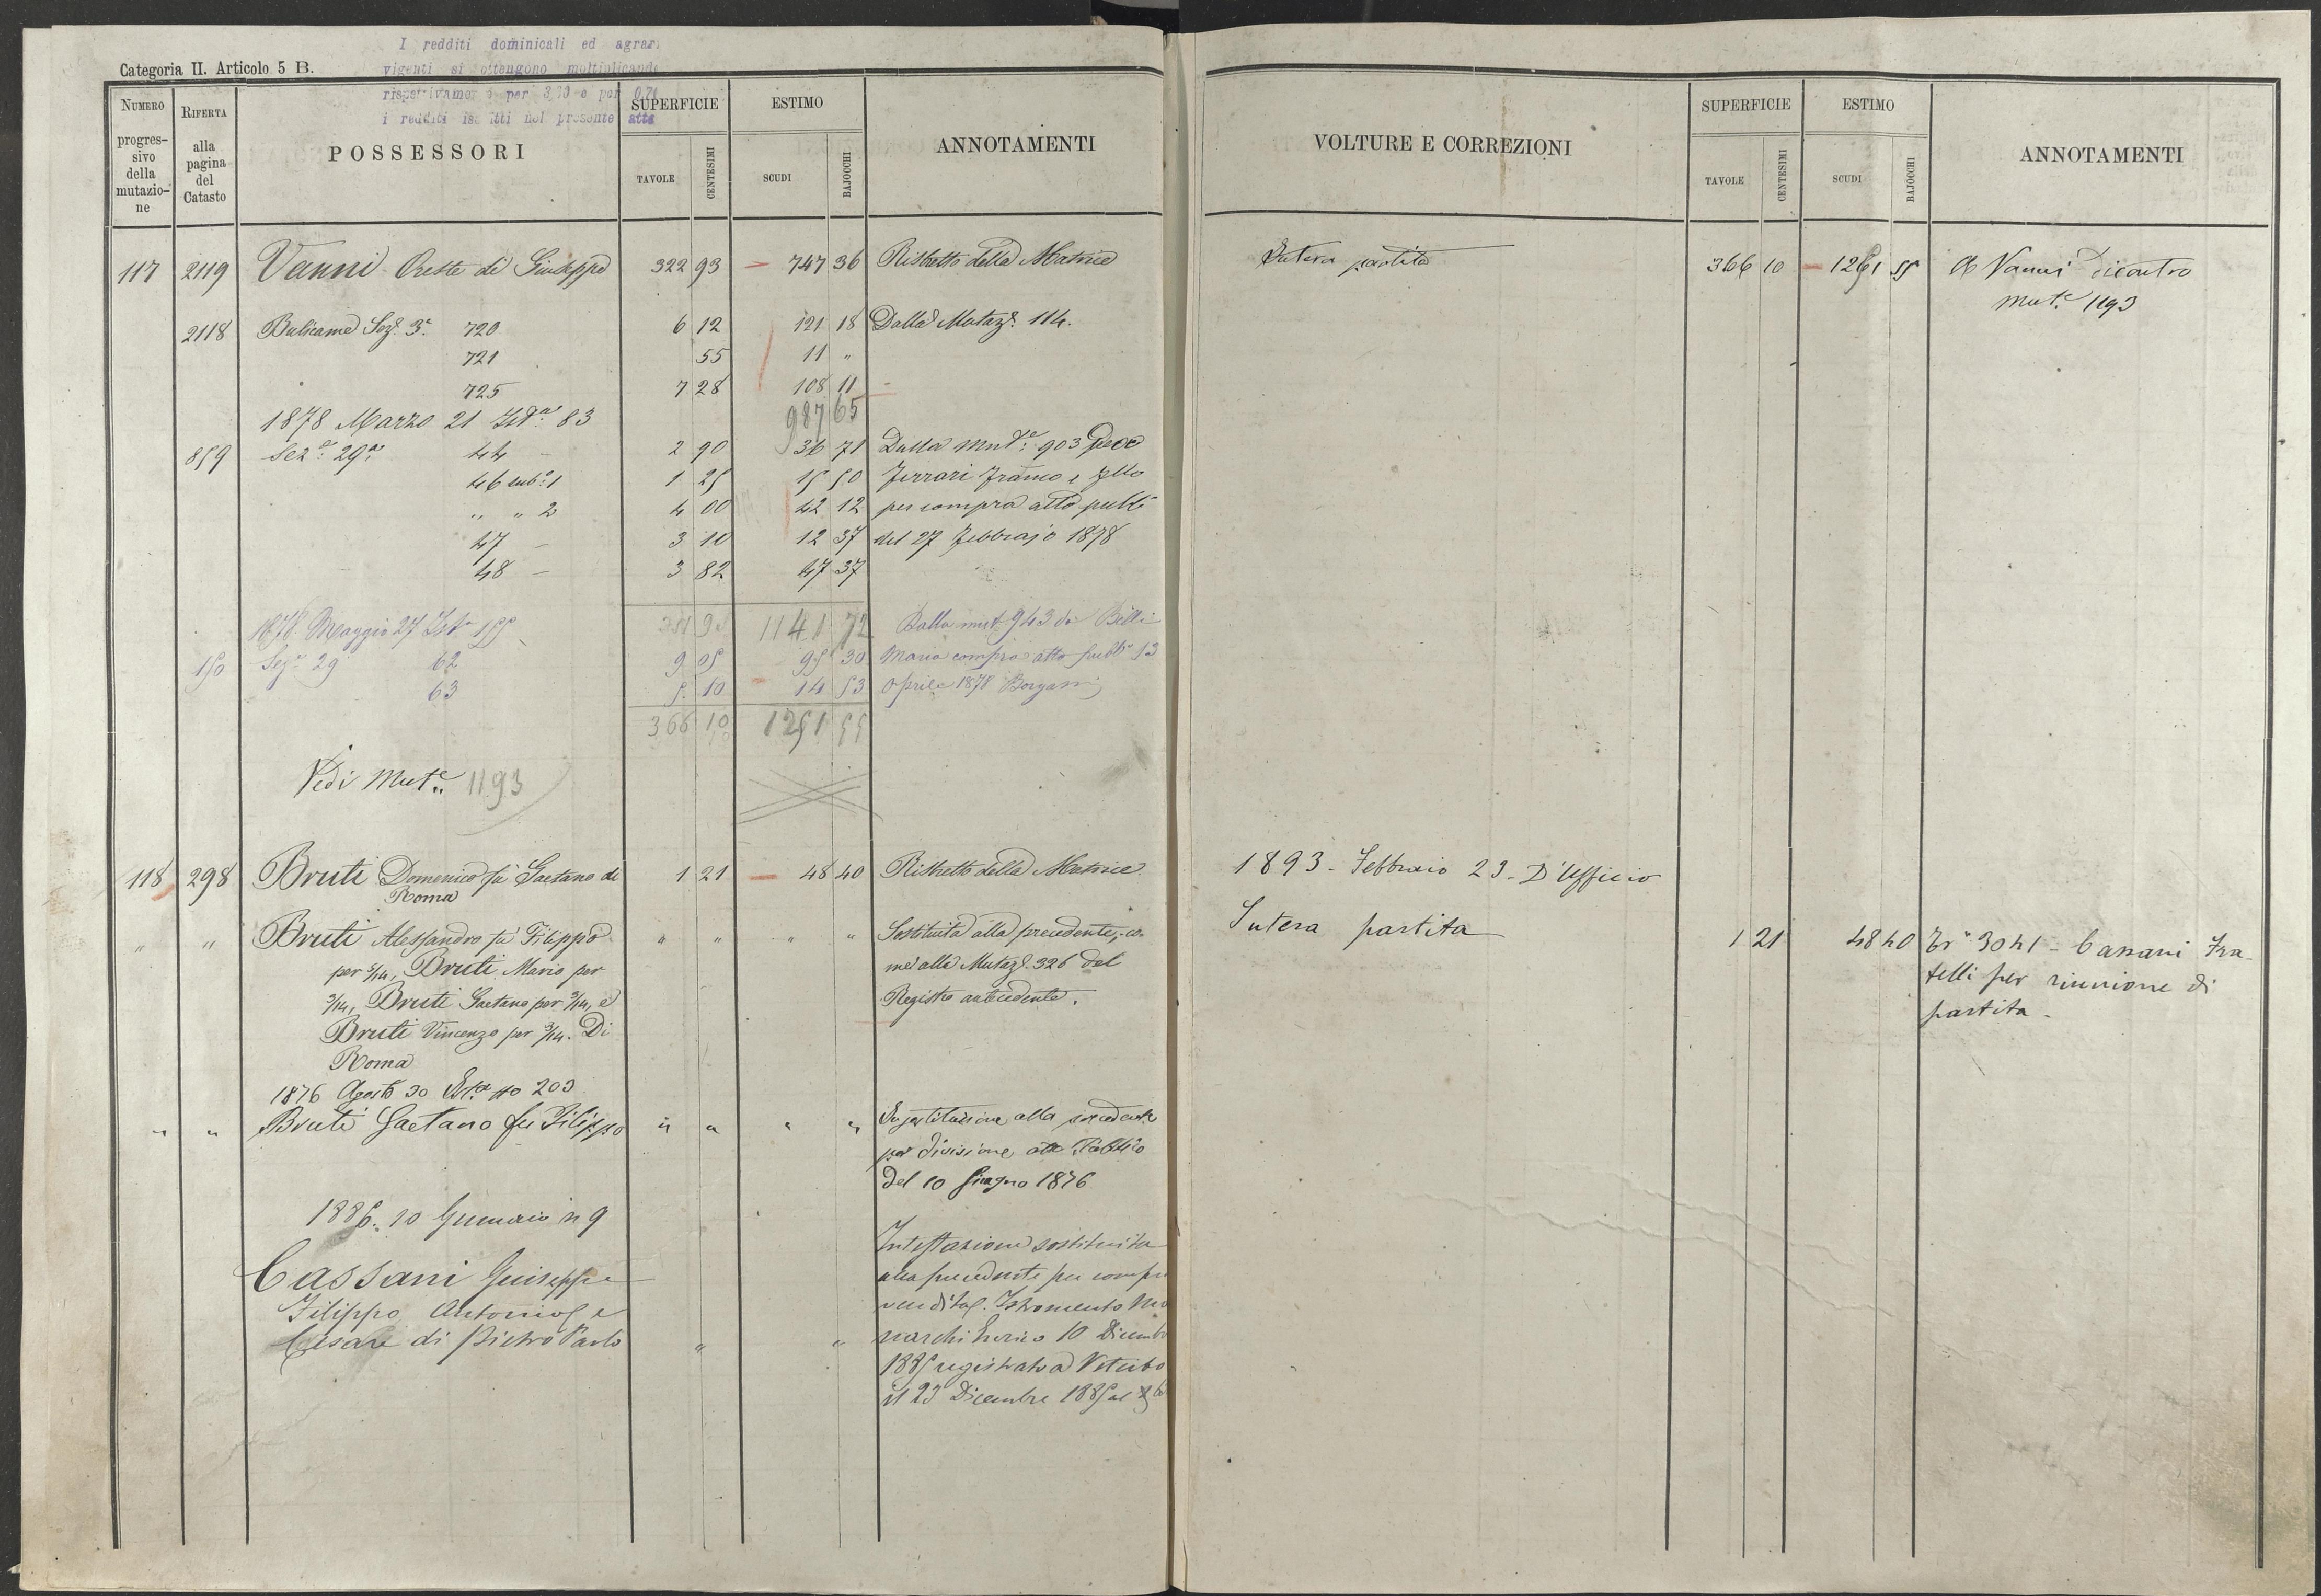 I redditi dominicali ed agrari
vigenti si ottengono moltiplicando
rispettivamente per 3,20 e per 0,70
i redditi iscritti nel presente atto
Categoria II. Articolo 5 B.
NUMERO progressivo della mutazione
RIFERTA alla pagina del Catasto
POSSESSORI
SUPERFICIE
TAVOLE CENTESIMI
ESTIMO
SCUDI BAJOCCHI
ANNOTAMENTI
117 2119 Vanni Oreste di Giuseppe 322 93 — 747 36 Ristretto della Matrice
2118 Bulicame Sez.e 3.a 720 6 12 121 18 Dalla Mutaz.e 114.
721 55 11 "
725 7 28 108 11 -
1878 Marzo 21 83
987 65
859 Sez.e 29.a 44 - 2 90 36 71 Dalla Mut.e 903
46 sub.o 1 1 25 15 50 Ferrari Franco e
" " 2 4 00 42 12 per compra atto pubb.
47 - 3 10 12 37 del 27 Febbrajo 1878
48 - 3 82 47 37
1141 72
1878 Maggio 27 155 Dalla mut. 943 da Billi
150 Sez.e 29 62 9 05 95 30 Maria compra atto pubb.o 13
63 5 10 14 53 Aprile 1878
366 10 1251 55
Vedi Mut.e 1193
118 298 Bruti Domenico fu Gaetano di 1 21 — 48 40 Ristretto della Matrice
Roma
" " Bruti Alessandro fu Filippo " " " " Sostituita alla precedente, co-
per 5/14, Bruti Mario per me alla Mutaz.e 326 del
3/14, Bruti Gaetano per 3/14, e Registro antecedente.
Bruti Vincenzo per 3/14. Di
Roma
1876 Agosto 30 203
" " Bruti Gaetano fu Filippo " " " " In sostituzione alla precedente
per divisione atto Pubblico
del 10 Giugno 1876
1886. 10 Gennaio n 9
Intestazione sostituita
Cassani Giuseppe alla precedente per compra
Filippo Antonio e vendita. Istromento
Cesare di Pietro Paolo " " Enrico 10 Dicembre
1885 registrato a Viterbo
il 23 Dicembre 1885 al
VOLTURE E CORREZIONI
SUPERFICIE
TAVOLE CENTESIMI
ESTIMO
SCUDI BAJOCCHI
ANNOTAMENTI
Intera partita 366 10 — 1251 55 A Vanni dicontro
Mut.e 1193
1893 - Febbraio 23 - D'Ufficio
Intera partita 1 21 48 40 3041 - Cassani Fra-
telli per riunione di
partita -